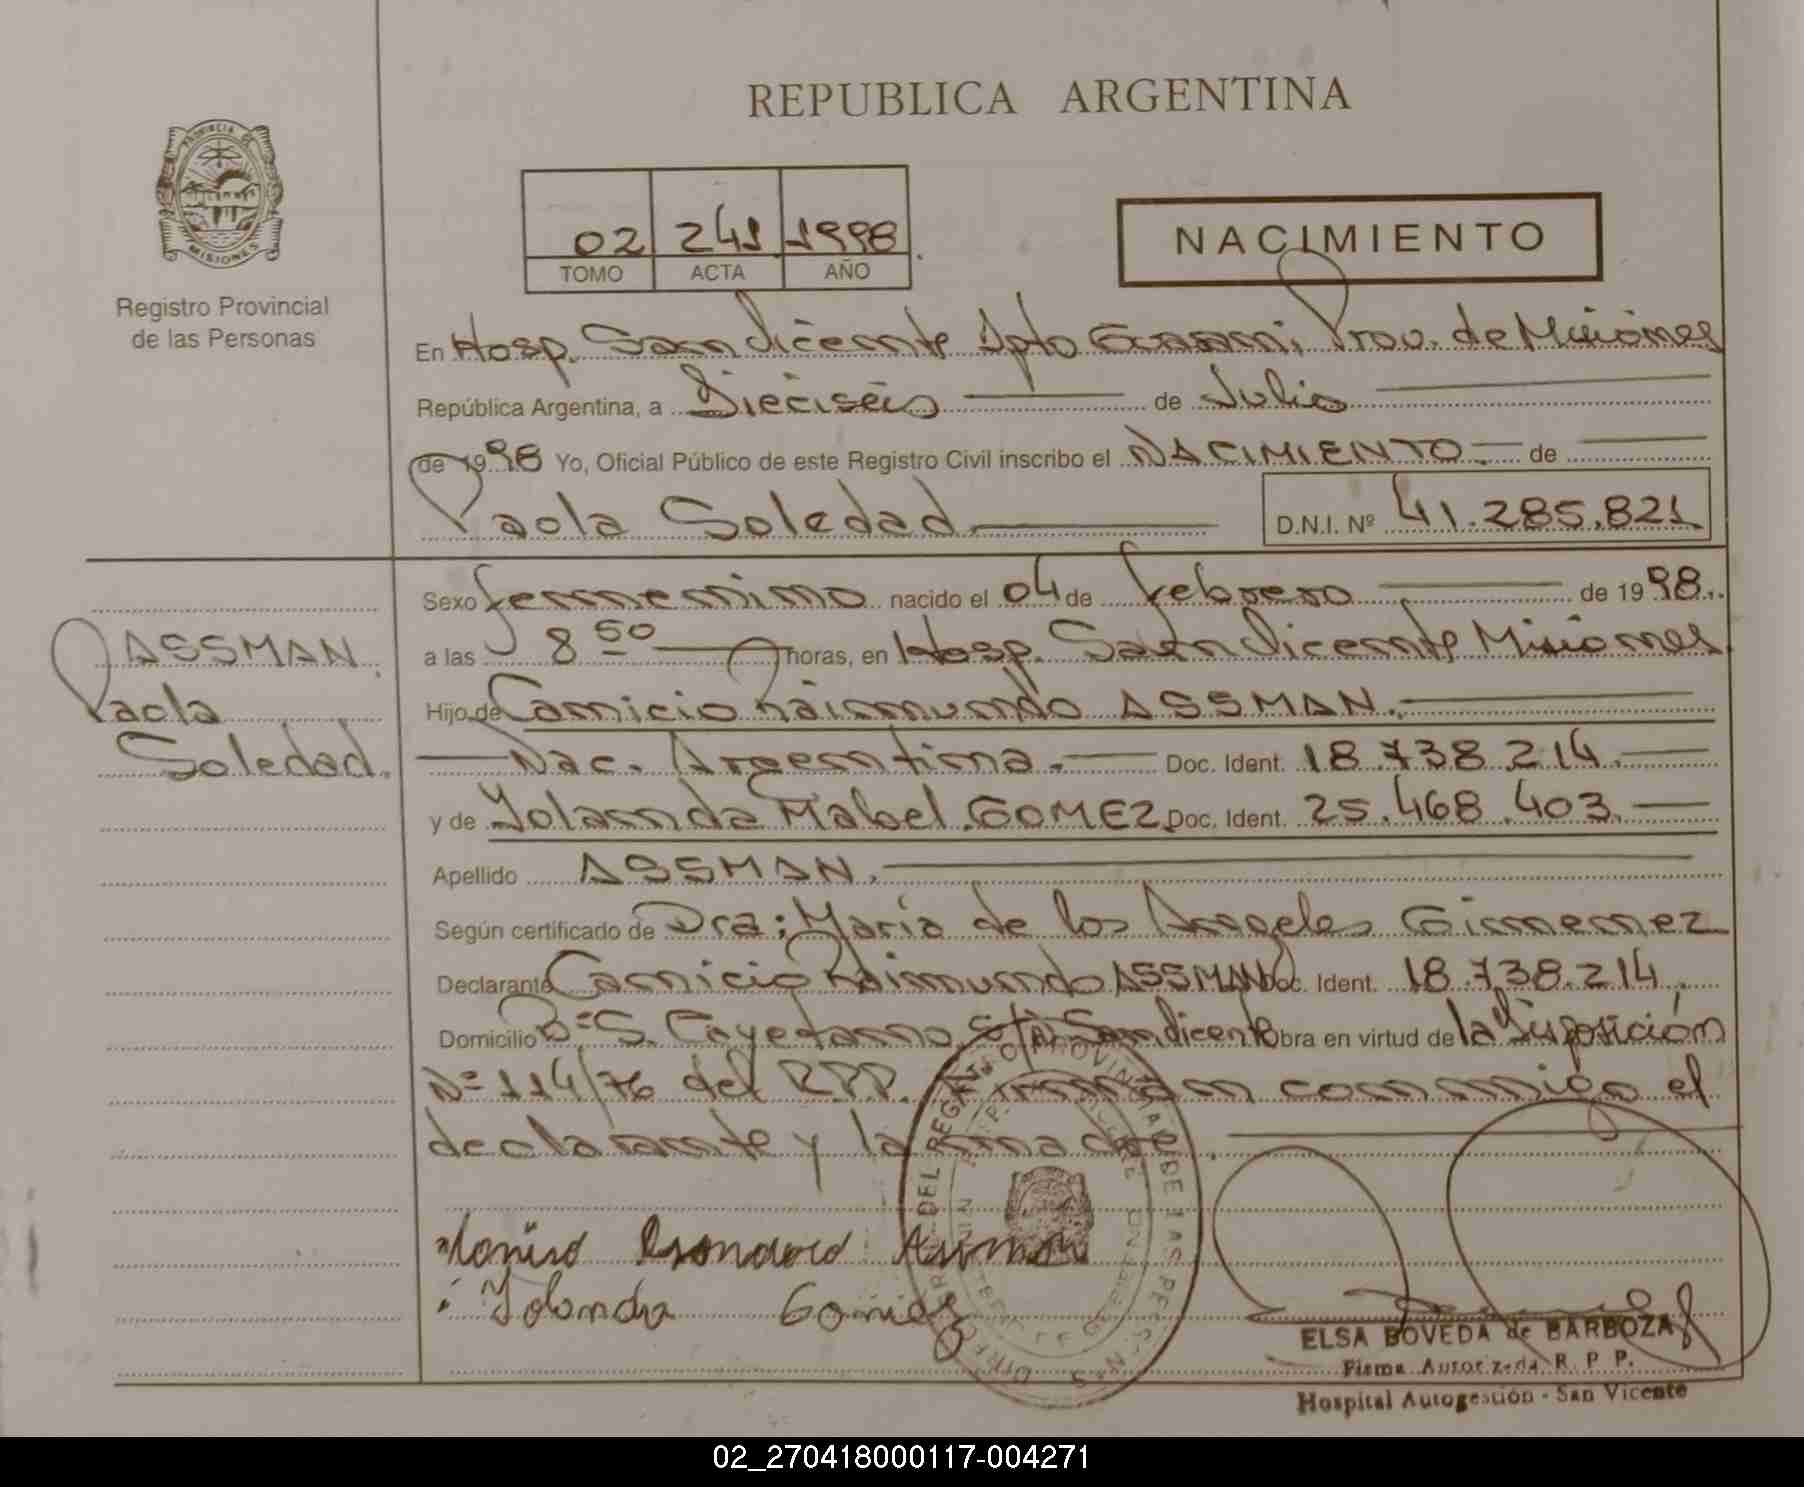 REPUBLICA ARGENTINA
PROVINCIA DE MISIONES
Registro Provincial
de las Personas
02 241 1998
TOMO ACTA AÑO
NACIMIENTO
En Hosp. San Vicente Dpto Guaraní, Prov. de Misiones
República Argentina, a Dieciséis de Julio
de 1998 Yo, Oficial Público de este Registro Civil inscribo el NACIMIENTO de
Paola Soledad D.N.I. Nº 41.285.821
ASSMAN.
Paola
Soledad.
Sexo femenino nacido el 04 de febrero de 1998.
a las 8 50 horas, en Hosp. San Vicente Misiones
Hijo de Canicio Raimundo ASSMAN.
Nac. Argentina. Doc. Ident. 18.738.214.
y de Yolanda Mabel GOMEZ. Doc. Ident. 25.468.403.
Apellido ASSMAN.
Según certificado de Dra: María de los Angeles Gimenez
Declarante Canicio Raimundo ASSMAN Doc. Ident. 18.738.214.
Domicilio Bº S. Cayetano San Vicente Obra en virtud de la Disposición
Nº 114/76 del RPP. Firman conmigo el
declarante y la madre.
Yolanda Gomez
ELSA BOVEDA de BARBOZA
Firma Autorizada R. P. P.
Hospital Autogestión - San Vicente
02_270418000117-004271